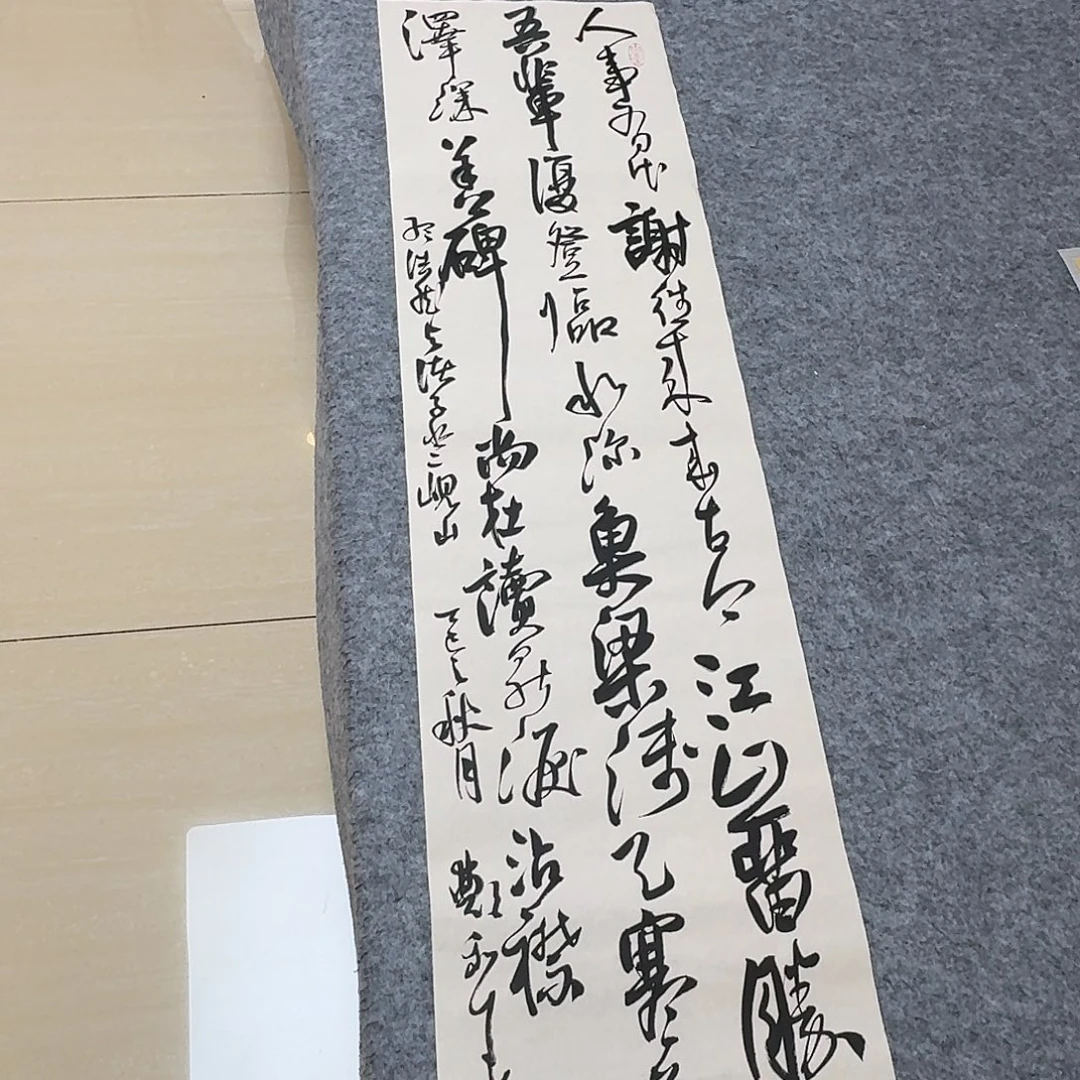 人事有代謝往來成古今江山留勝
吾輩復登臨水落魚梁淺天寒
澤深羊公碑尚在讀罷淚沾襟
孟浩然与諸子登峴山 乙巳之秋月